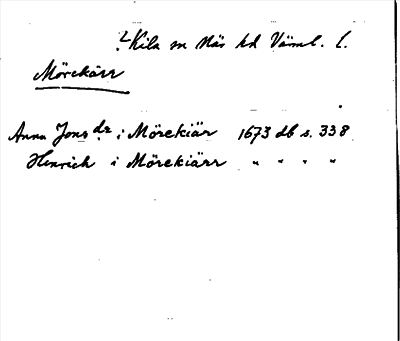 ? Kila sn Näs hd Värml. l.
Mörckärr
Anna Jons dr i Mörekiär 1673 db s. 338
Henrich i Mörekiärr " " " "